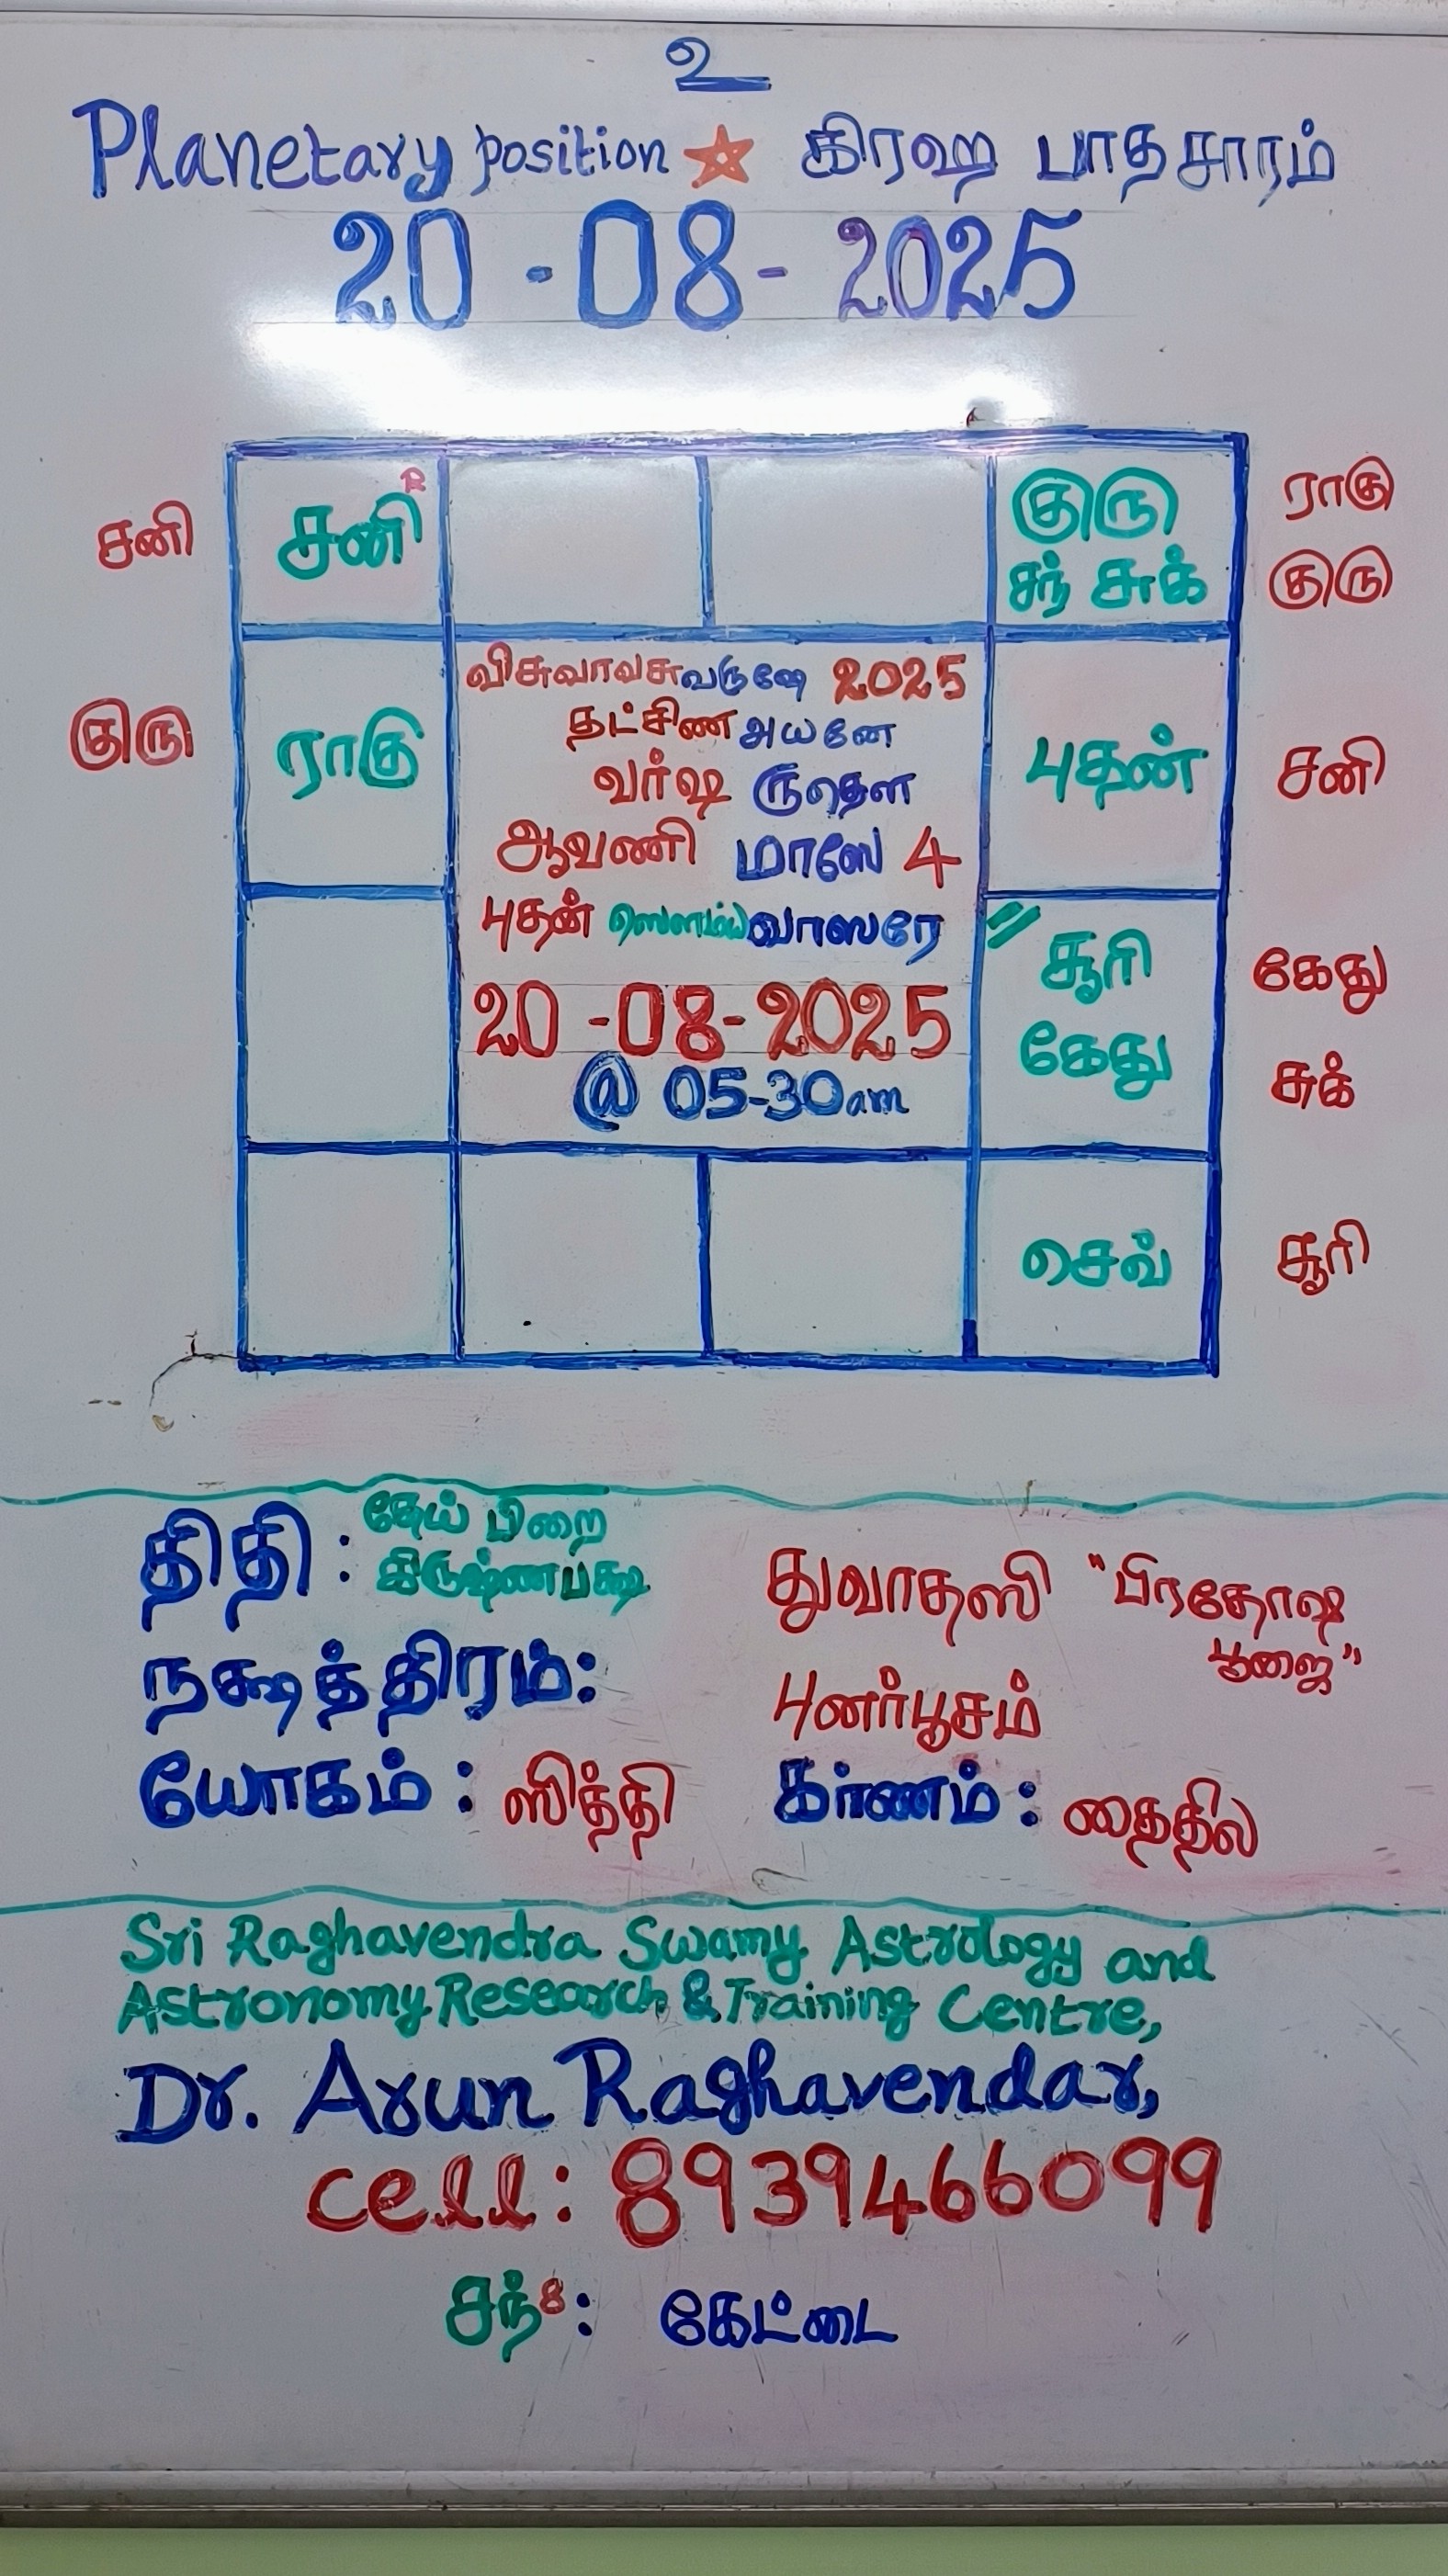 உ
Planetary position ★ கிரஹ பாதசாரம்
20-08-2025
சனி சனி R குரு ராகு
சந் சுக் குரு
விசுவாவசு வருஷே 2025
தட்சிண அயனே
குரு ராகு வர்ஷ ருதௌ புதன் சனி
ஆவணி மாஸே 4
புதன் ஸௌம்ய வாஸரே
சூரி கேது
20-08-2025
கேது சுக்
@ 05-30am
செவ் சூரி
திதி : தேய் பிறை
கிருஷ்ணபக்ஷ துவாதஸி "பிரதோஷ
பூஜை"
நக்ஷத்திரம்: புனர்பூசம்
யோகம் : ஸித்தி கர்ணம் : தைதில
Sri Raghavendra Swamy Astrology and
Astronomy Research & Training Centre,
Dr. Arun Raghavendar,
cell: 8939466099
சந் 8 : கேட்டை